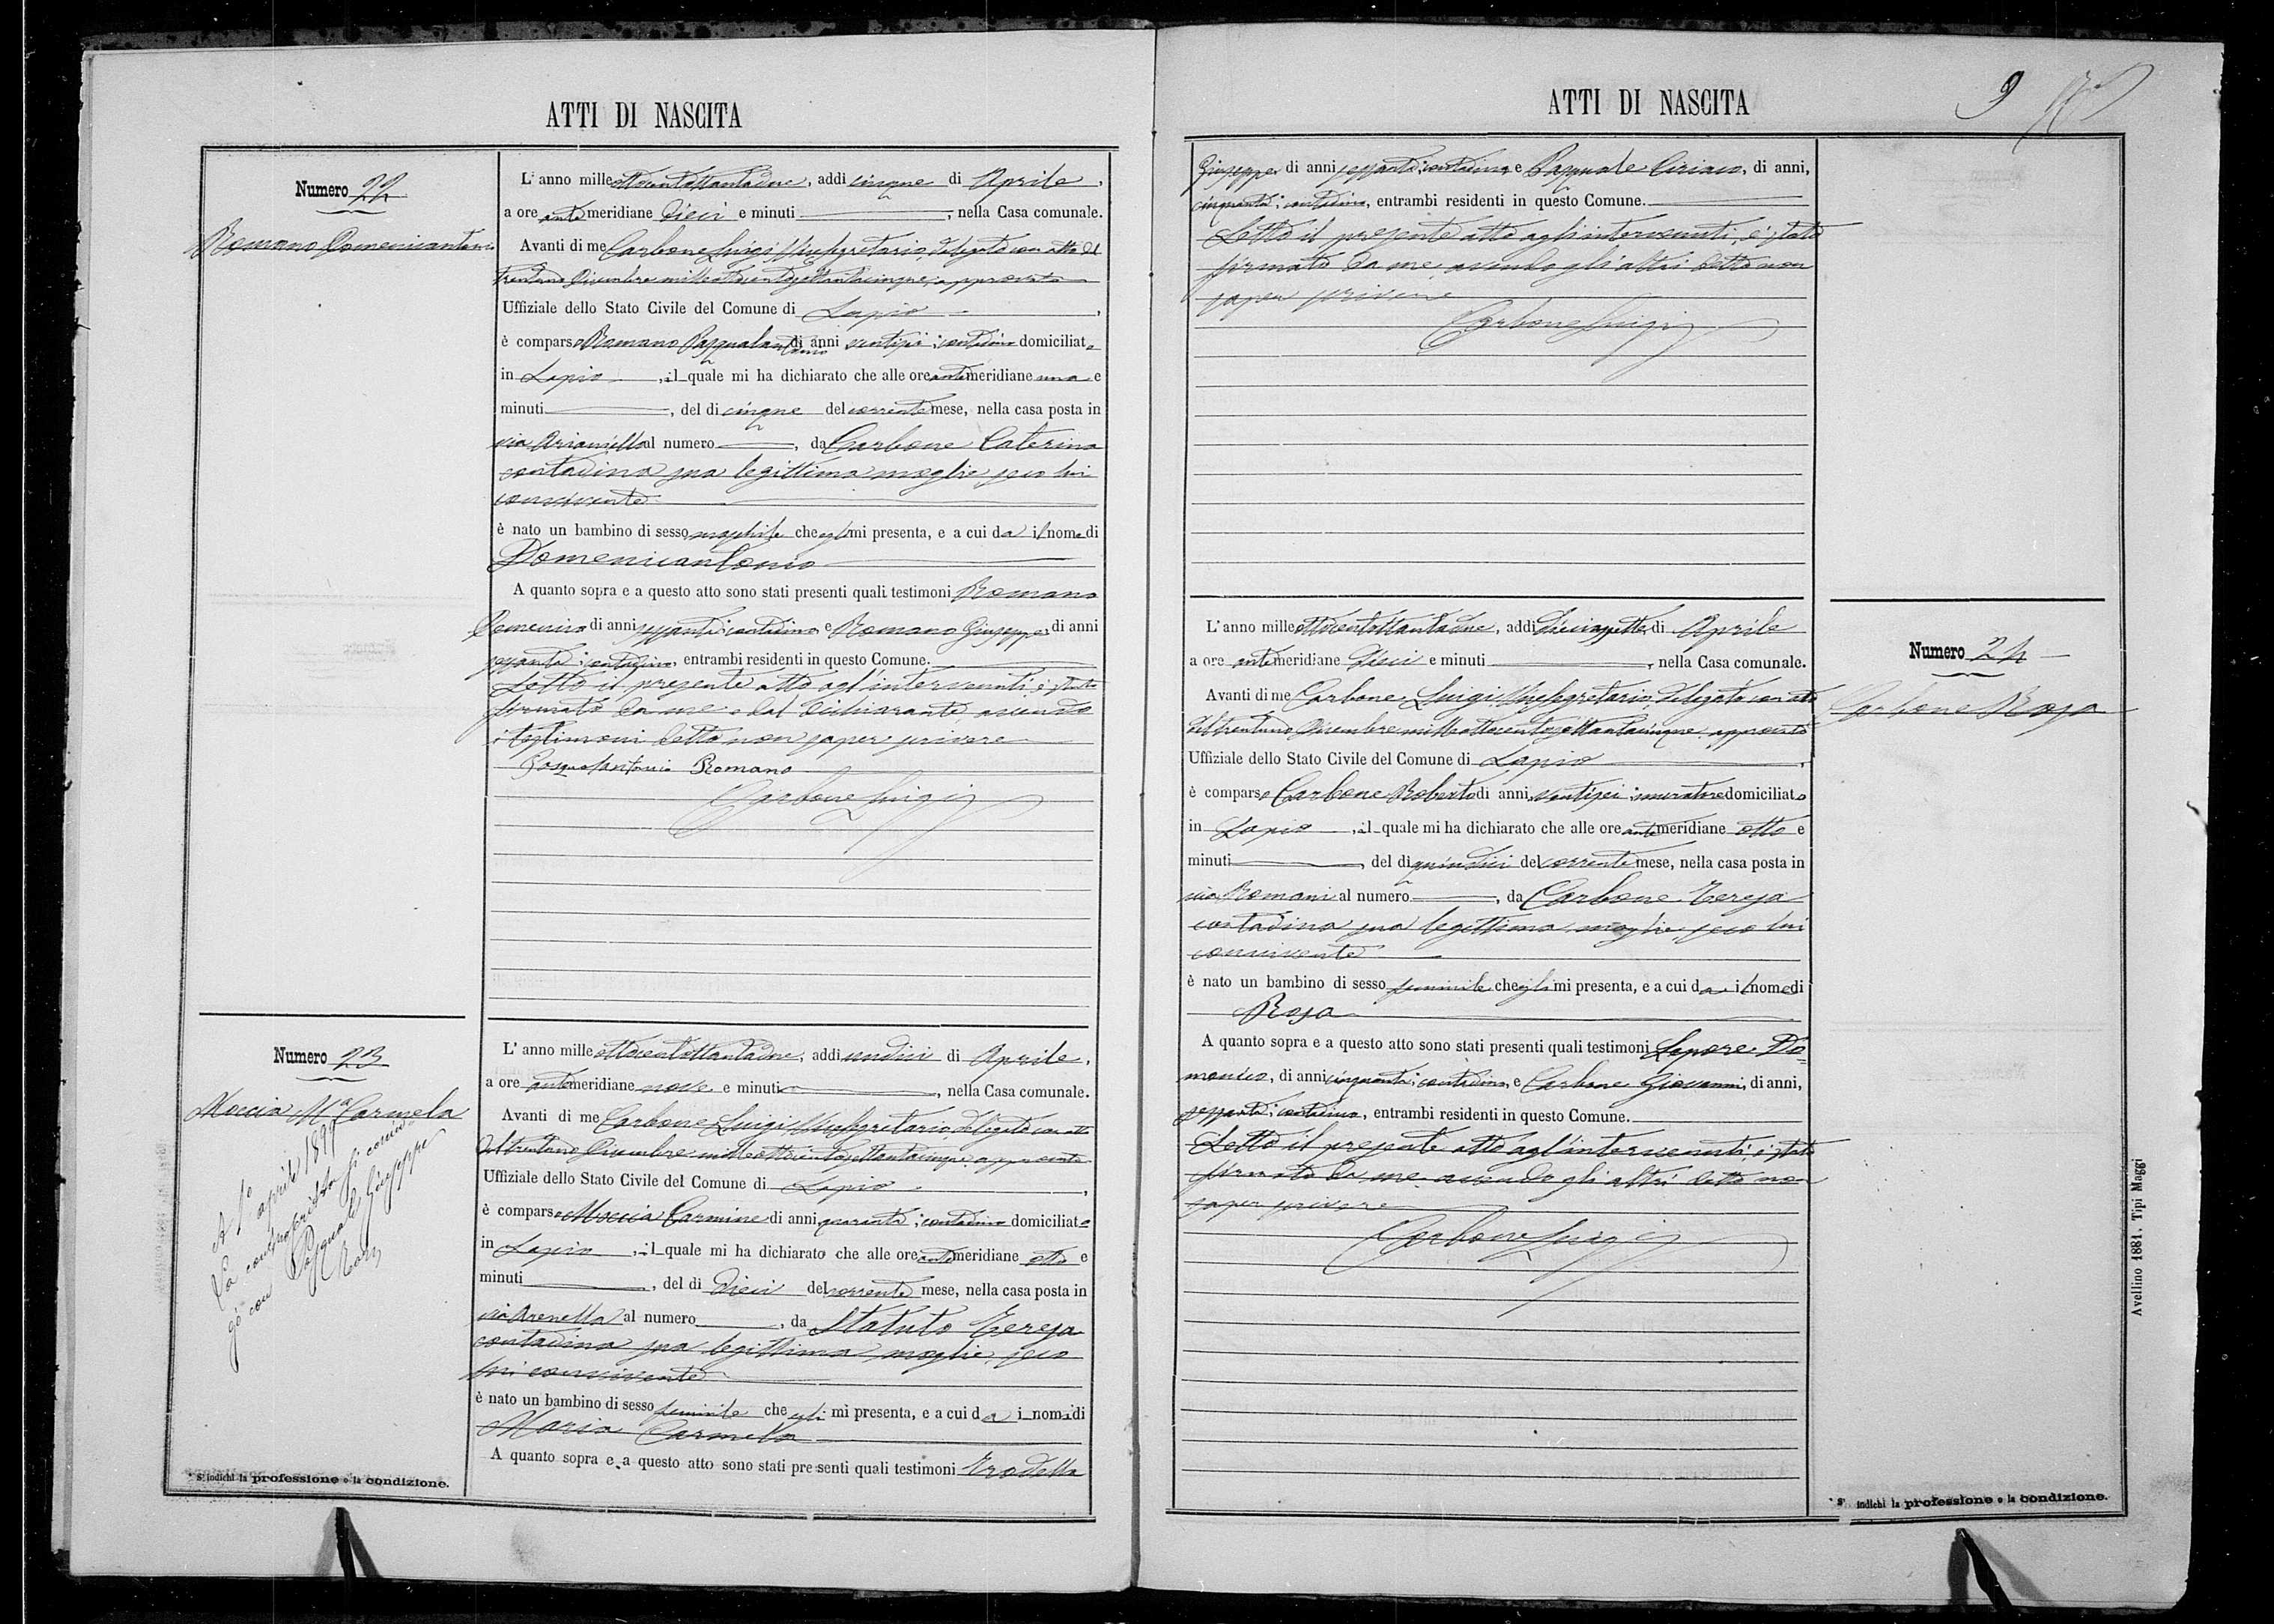 ATTI DI NASCITA
Numero 22
Romano Domenicantonio
L'anno milleottocentottantadue, addì cinque di Aprile,
a ore antemeridiane dieci e minuti, nella Casa comunale.
Avanti di me Carbone Luigi Vicesegretario, delegato con atto del
trentuno Dicembre milleottocentosettantacinque, approvato
Uffiziale dello Stato Civile del Comune di Lapio,
è comparso Romano Pasqualantonio di anni ventisei, contadino domiciliato
in Lapio, il quale mi ha dichiarato che alle ore antemeridiane una e
minuti, del dì cinque del corrente mese, nella casa posta in
via Arianiello al numero, da Carbone Caterina
contadina sua legittima moglie, seco lui
convivente
è nato un bambino di sesso maschile che egli mi presenta, e a cui da il nome di
Domenicantonio
A quanto sopra e a questo atto sono stati presenti quali testimoni Romano
Domenico di anni sessanta, contadino e Romano Giuseppe, di anni
sessanta, contadino, entrambi residenti in questo Comune.
Letto il presente atto agl'intervenuti, è stato
firmato da me e dal dichiarante, avendo
i testimoni detto non saper scrivere
Pasqualantonio Romano
Carbone Luigi
Numero 23
Moccia Mª Carmela
A 1º aprile 1899
La controscritta si coniu-
gò con Pasquale Giuseppe
L'anno milleottocentottantadue, addì undici di Aprile,
a ore antemeridiane nove e minuti, nella Casa comunale.
Avanti di me Carbone Luigi Vicesegretario, delegato con atto
del trentuno Dicembre milleottocentosettantacinque, approvato
Uffiziale dello Stato Civile del Comune di Lapio,
è comparso Moccia Carmine di anni quaranta, contadino domiciliato
in Lapio, il quale mi ha dichiarato che alle ore antemeridiane otto e
minuti, del dì dieci del corrente mese, nella casa posta in
via Arenella al numero, da Statuto Teresa
contadina sua legittima moglie, seco
lui convivente
è nato un bambino di sesso feminile che egli mi presenta, e a cui da i nome di
Maria Carmela
A quanto sopra e a questo atto sono stati presenti quali testimoni Trodella
* Si indichi la professione o la condizione.
ATTI DI NASCITA
9
Giuseppe, di anni sessanta, contadino e Pasquale Ciriaco, di anni,
cinquanta, contadino, entrambi residenti in questo Comune.
Letto il presente atto agli intervenuti, è stato
firmato da me, avendo gli altri detto non
saper scrivere
Carbone Luigi
L'anno milleottocentottantadue, addì diciassette di Aprile
a ore antemeridiane dieci e minuti, nella Casa comunale.
Avanti di me Carbone Luigi Vicesegretario, delegato con atto
del trentuno Dicembre milleottocentosettantacinque, approvato
Uffiziale dello Stato Civile del Comune di Lapio,
è comparso Carbone Roberto di anni ventisei, muratore domiciliato
in Lapio, il quale mi ha dichiarato che alle ore antemeridiane otto e
minuti, del dì quindici del corrente mese, nella casa posta in
via Romani al numero, da Carbone Teresa
contadina sua legittima moglie, seco lui
convivente
è nato un bambino di sesso feminile che egli mi presenta, e a cui da il nome di
Rosa
A quanto sopra e a questo atto sono stati presenti quali testimoni Lepore Do=
menico, di anni cinquanta, contadino, e Carbone Giovanni, di anni,
sessanta, contadino, entrambi residenti in questo Comune.
Letto il presente atto agl'intervenuti, è stato
firmato da me, avendo gli altri detto non
saper scrivere
Carbone Luigi
Numero 24
Carbone Rosa
Avellino 1881. Tipi Maggi
* Si indichi la professione o la condizione.